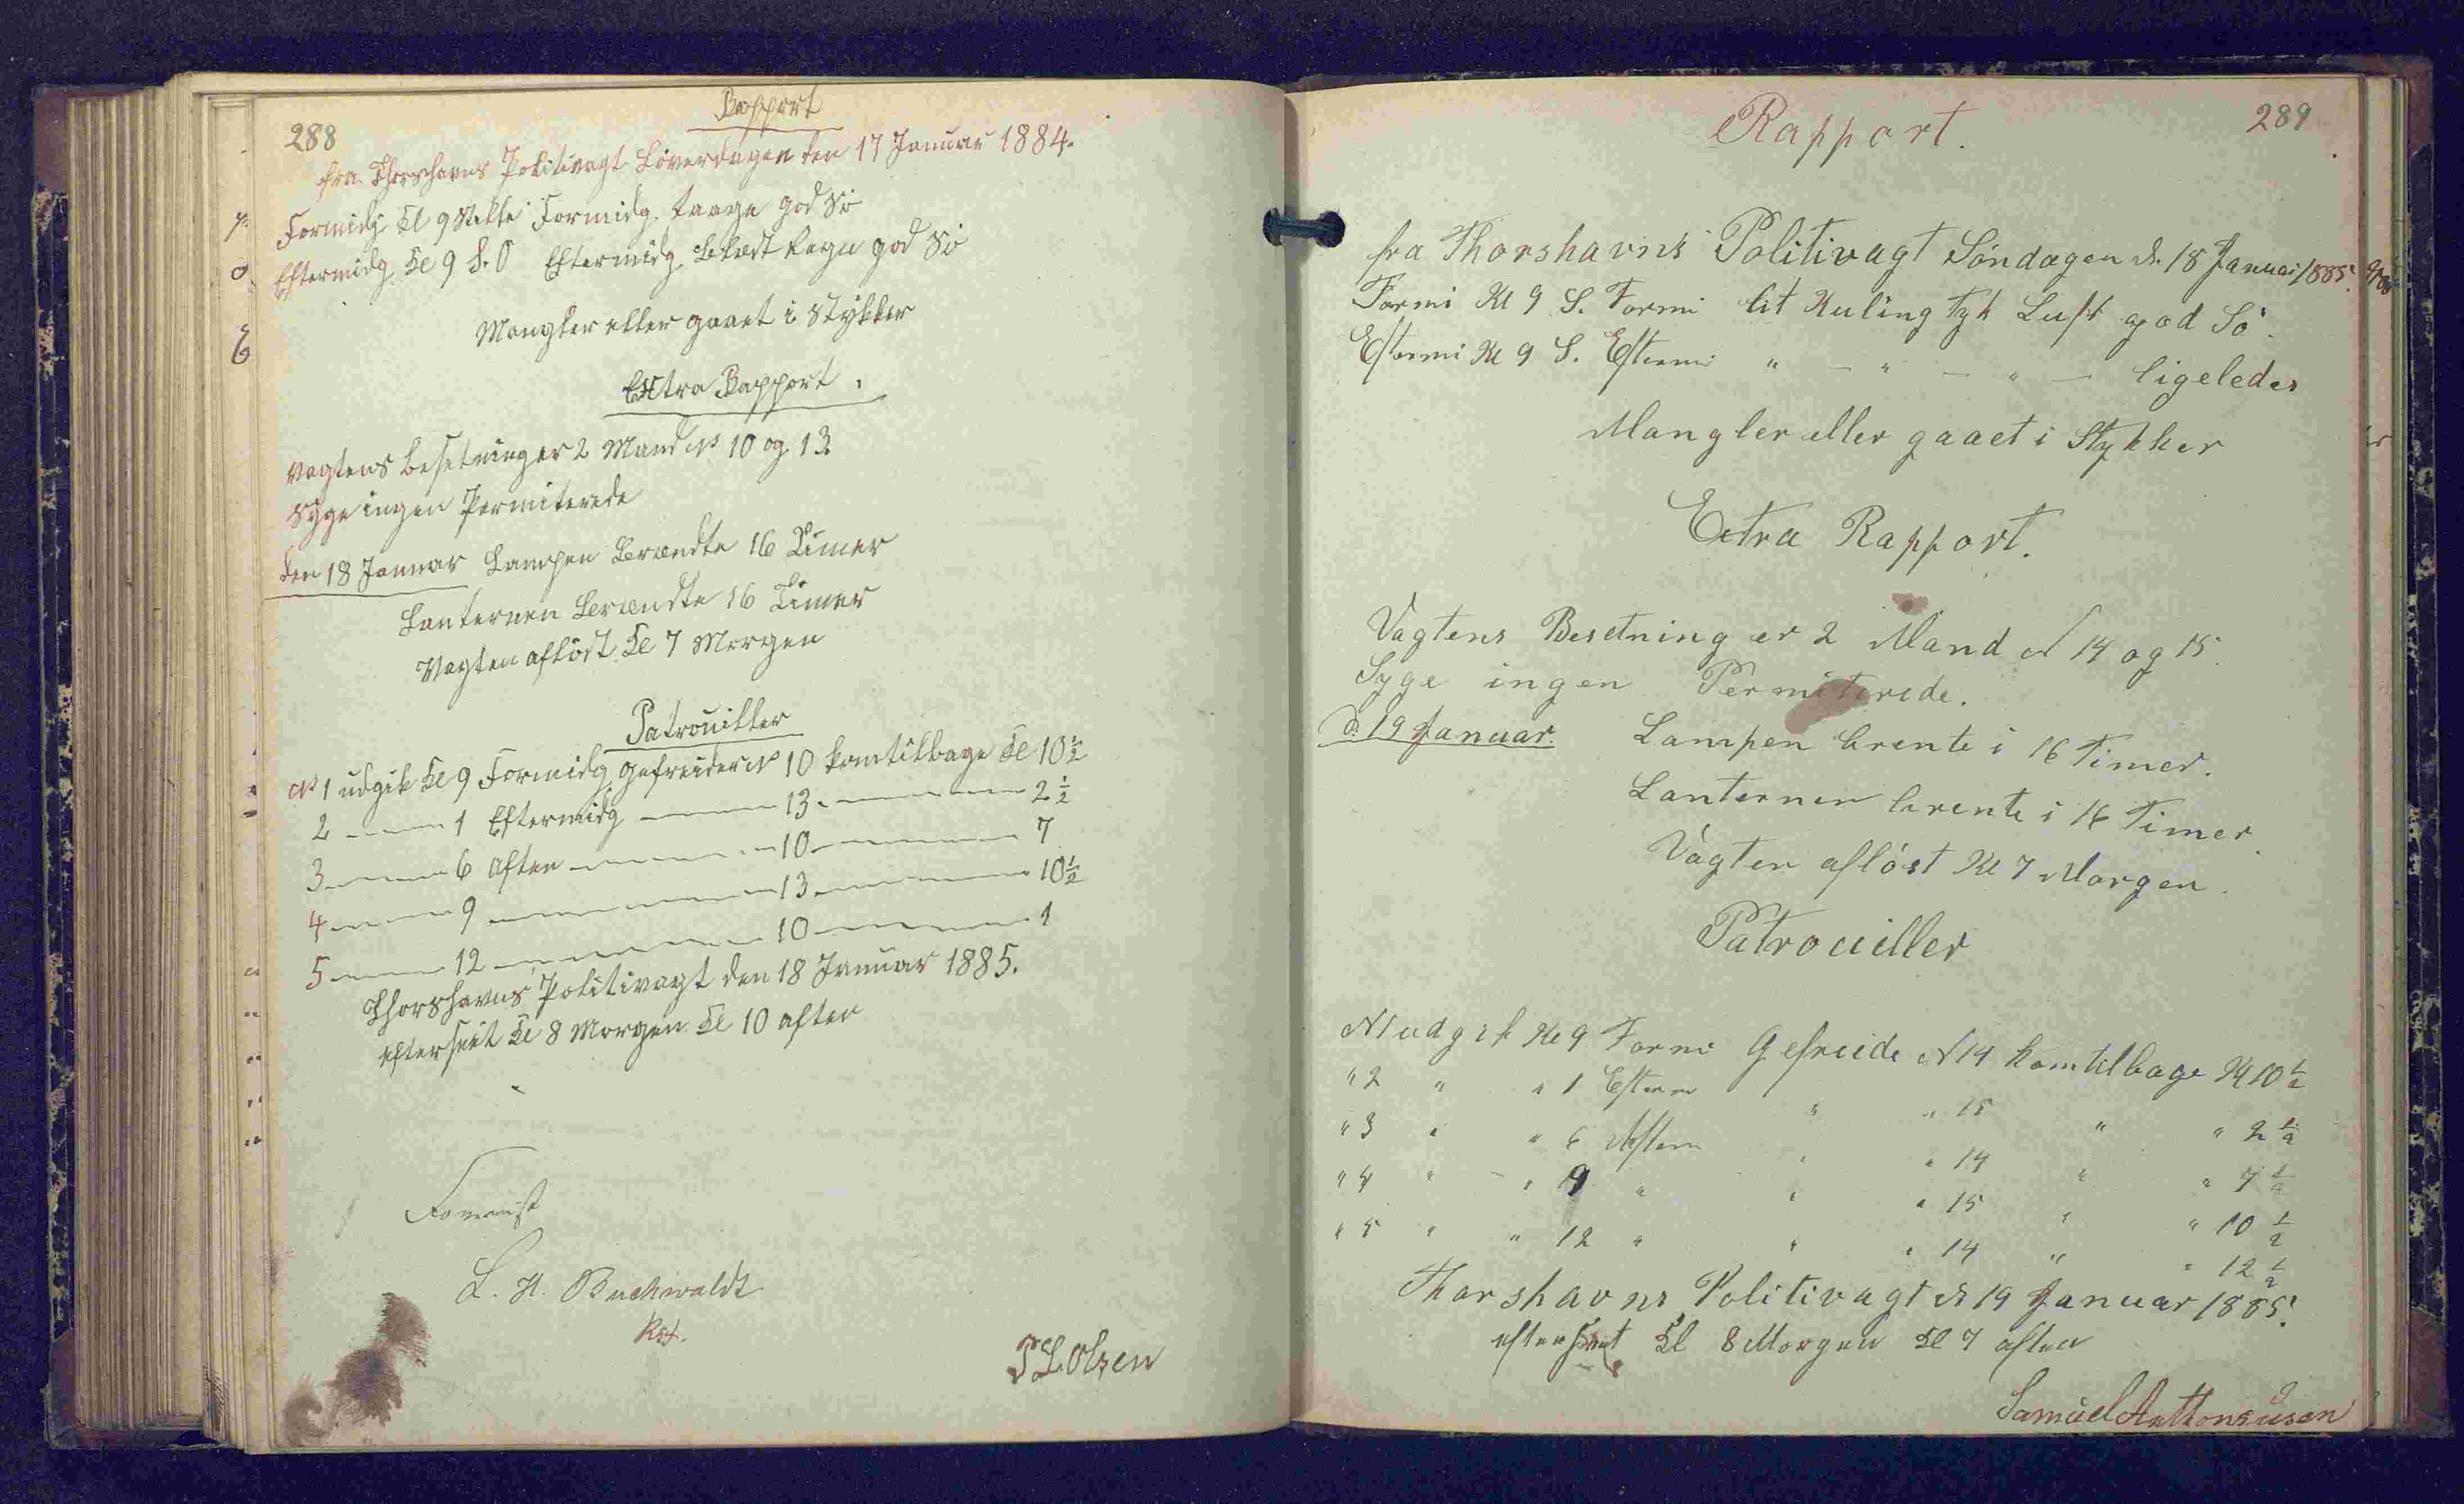 288
Rapport
fra Thorshavns Politivagt Löverdagen den 17 Januar 1884.
Formidg Kl 9 Stille Formidg. taage god Sö
Eftermidg Kl 9 S.O Eftermidg Letæst Regn god Sö
Mangler eller gaaet i Stÿkker
Extra Rapport.
Vagtens besetning er 2 Mand No 10 og 13.
Sÿge ingen Permiterede
den 18 Januar Lampen Brændte 16 Timer
Lanternen Brændte 16 Timer
Vagten aflöst Kl 7 Morgen
Patrouiller
No 1 udgik Kl 9 Formidg Gefreider No 10 komtilbage Kl 10½
2 — 1 Eftermidg — 13 — 2½
3 — 6 Aften — 10 — 7
4 — 9 — 13 — 10½
5 — 12 — 10 — 1
Thorshavns Politivagt den 18 Januar 1885.
efterseet Kl 8 Morgen Kl 10 aften
L. H. Buchwaldt
Kst.
P L Olsen
289
Rapport.
fra Thorshavns Politivagt Söndagen d. 18 Januar 1885.
Formi Kl 9 S. Formi lit Kuling Tyk Luft god Sö.
Eftermi Kl 9 S. Eftermi " — " — " — ligeledes
Mangler eller gaaet i Stykker
Extra Rapport.
Vagtens Besetning er 2 Mand N 14 og 15.
Syge ingen Permiterede.
d. 19 Januar. Lampen brente i 16 Timer.
Lanternen brente i 16 Timer.
Vagten aflöst Kl 7 Morgen.
Patrouiller
N1 udgik Kl 9 Formi Gefreide N 14 komtilbage Kl 10½
" 2 " " 1 Efterm " " 15 " " 2½
" 3 " " 6 Aften " " 14 " " 7½
" 4 " " 9 " " " 15 " " 10½
" 5 " " 12 " " " 14 " " 12½
Thorshavns Politivagt d. 19 Januar 1885.
efterseet Kl 8 Morgen Kl 7 aften
Samuel Anttoniusen